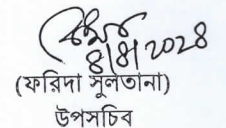 ৪/৪/২০২৪
(ফরিদা সুলতানা)
উপসচিব